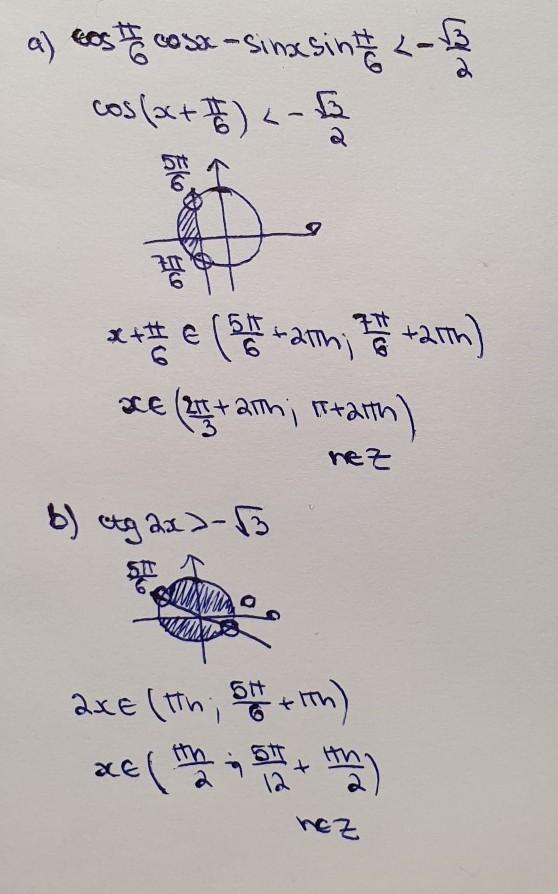 a) cos π/6 cosx - sinx sin π/6 < - √3/2
cos(x + π/6) < - √3/2
5π/6
7π/6
x + π/6 ∈ (5π/6 + 2πn; 7π/6 + 2πn)
x ∈ (2π/3 + 2πn; π + 2πn)
n ∈ Z
b) ctg 2x > - √3
5π/6
0
2x ∈ (πn; 5π/6 + πn)
x ∈ (πn/2; 5π/12 + πn/2)
n ∈ Z